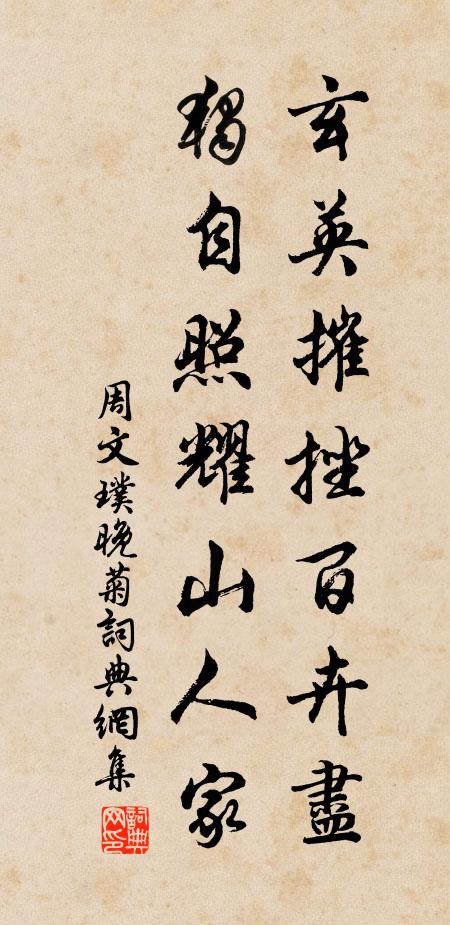 玄英摧挫百卉盡
獨自照耀山人家
周文璞晚菊詞典網集
詞典網印